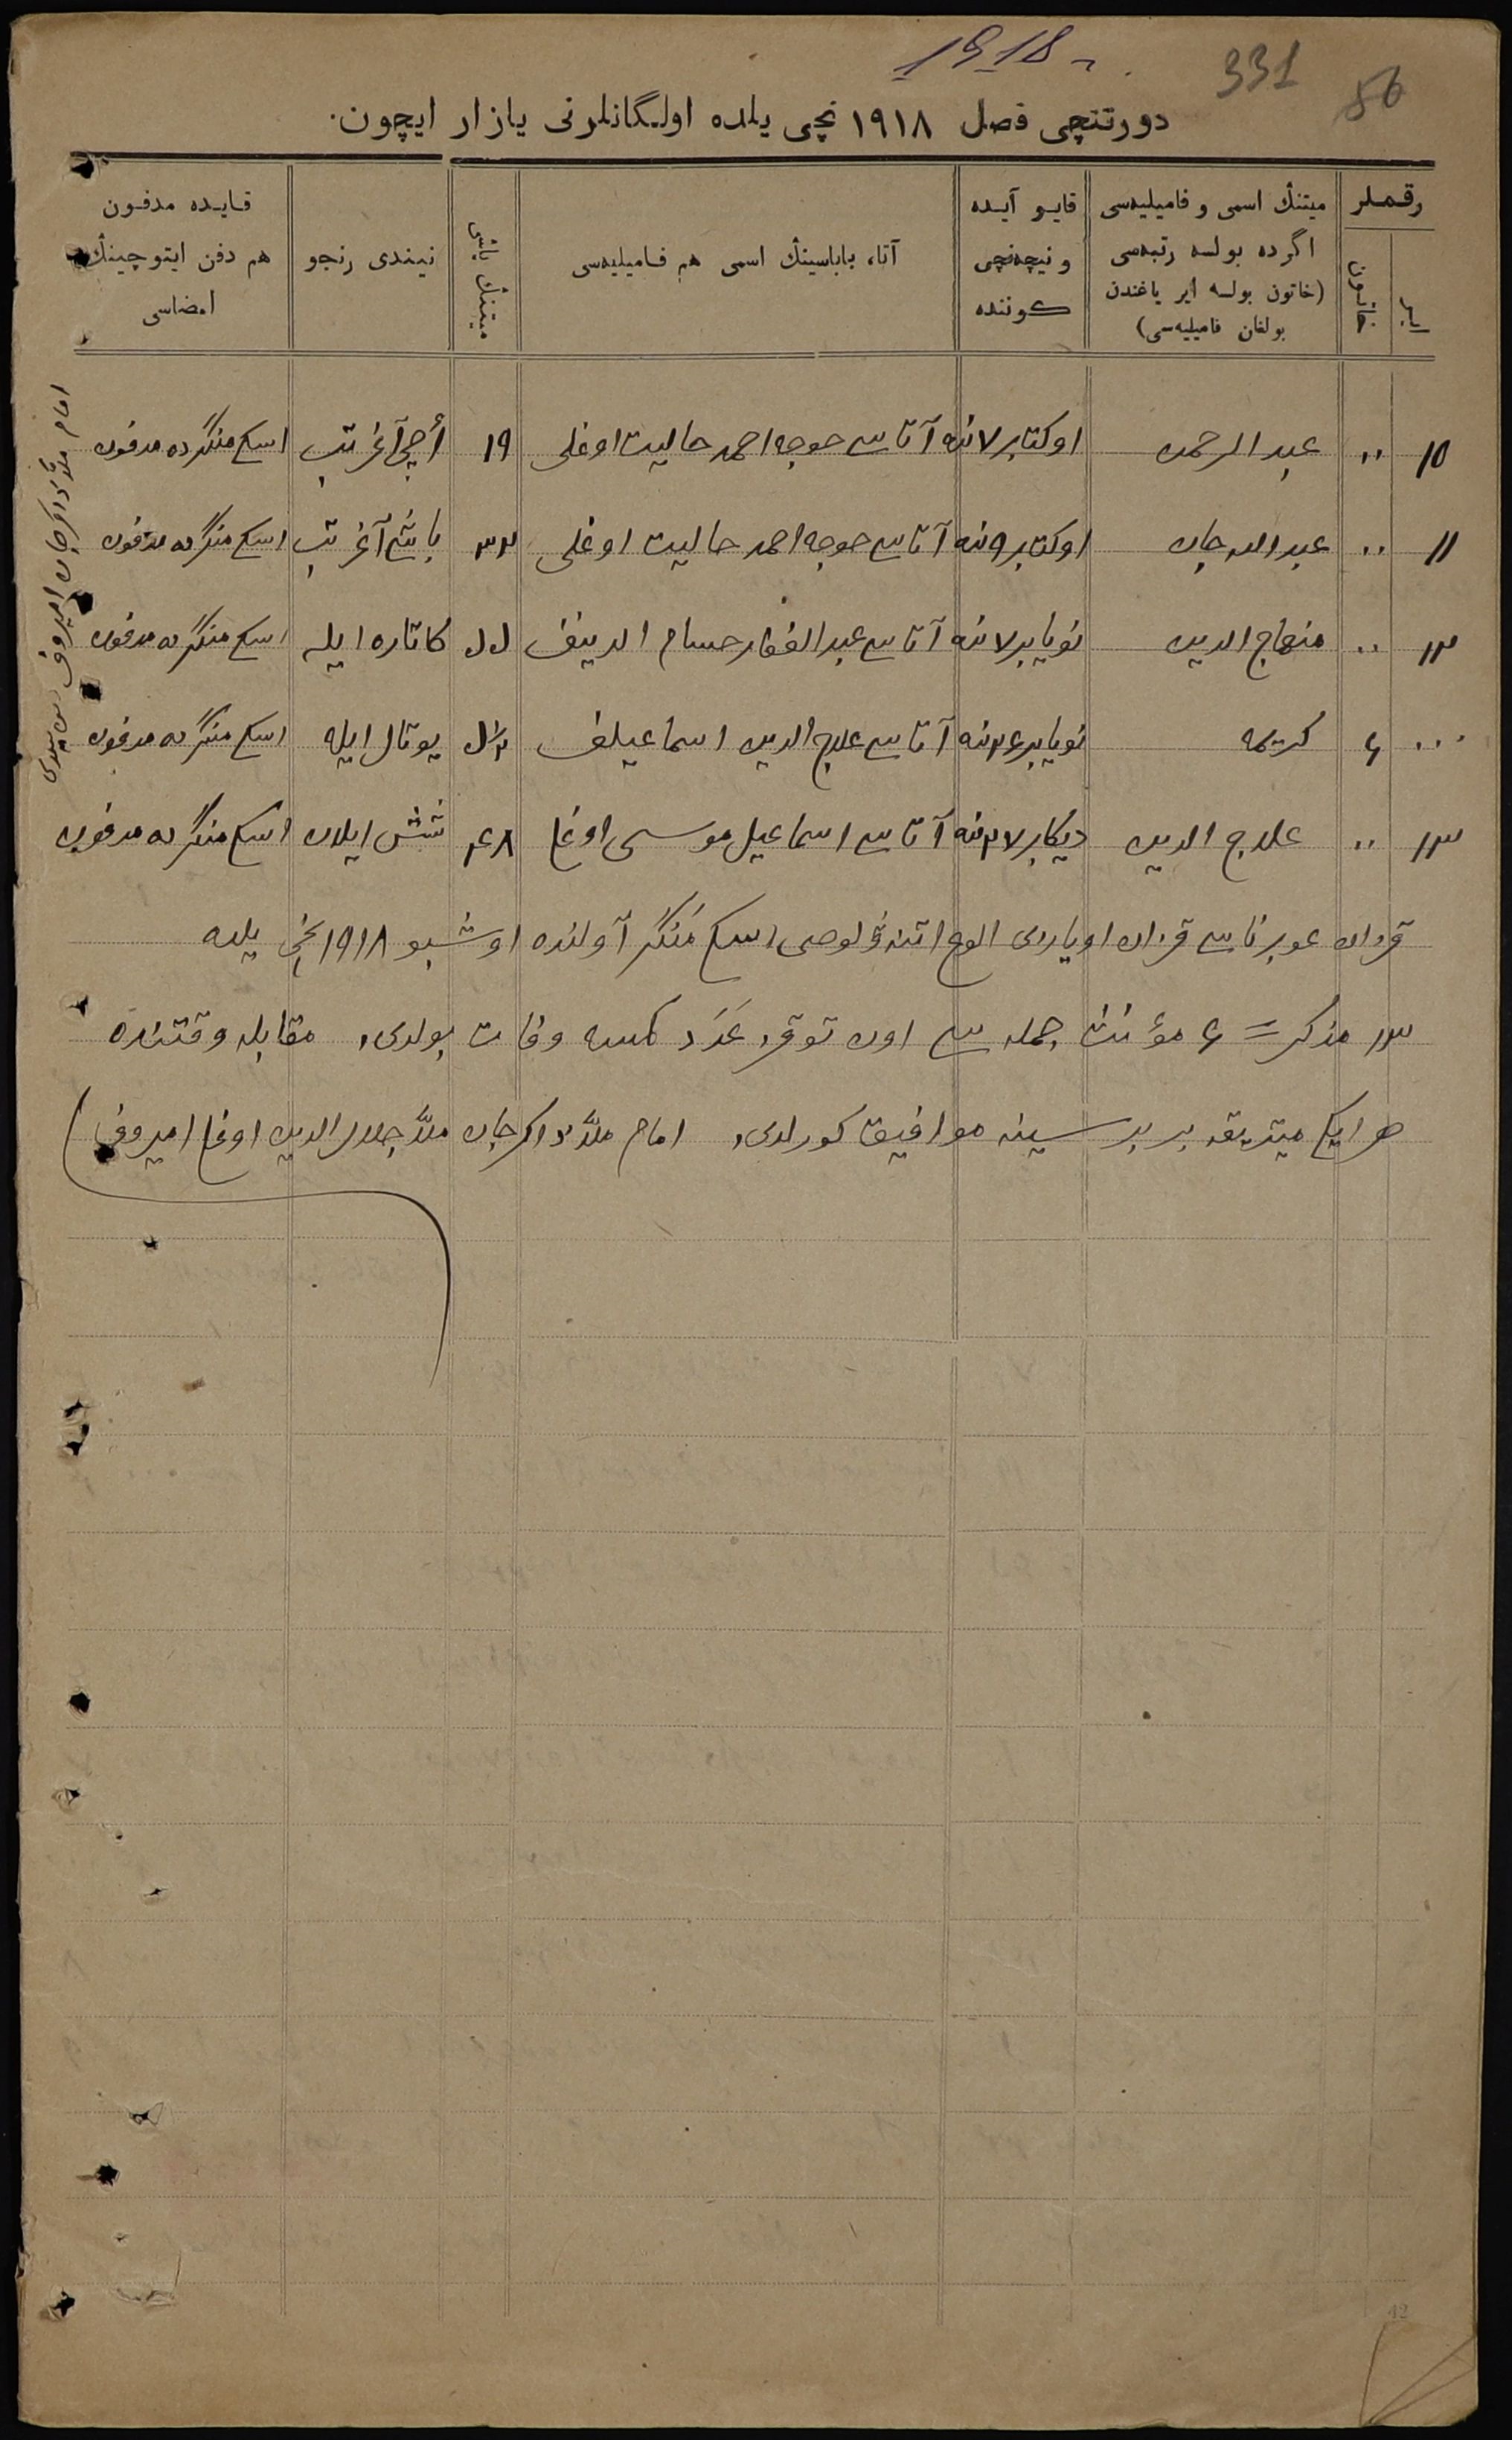 1918 г.
331
56
دورتنچی فصل ۱۹۱۸ نچی یلده اولـگانلرنی یازار ایچون.
رقـمـلر
ایر
خاتون
میتنڭ اسمی و فامیلیه‌سی اگر ده بولسه رتبه‌سی (خاتون بولسه ایر یاغندن بولغان فامیلیه‌سی)
قایـو آیـده و نیچه‌نچی کـوننده
آتا، باباسینڭ اسمی هم فـامیلیه‌سی
میتنڭ یاشی
نیندی رنجو
قـایـده مدفـون هم دفن ایتوچینڭ امضاسی
۱۰ ،، عبد الرحمن اوکتابر ۷ نده آتاسی خوجه احمد حالیت اوغلی ۱۹ أچی آغرتب اسکی منگرده مدفون
۱۱ ،، عبد الله جان اوکتابر ۹ نده آتاسی خوجه احمد حالیت اوغلی ۳۲ باشی آغرتب اسکی منگرده مدفون
۱۲ ،، منهاج الدین نویابر ۷ نده آتاسی عبد الغفار حسام الدینف کاتاره ایله اسکی منگرده مدفون
،، ۶ کریمه نویابر ۲۶ نده آتاسی علاج الدین اسماعیلف یوتال ایله اسکی منگرده مدفون
۱۳ ،، علاج الدین دیکابر ۲۷ نده آتاسی اسماعیل موسی اوغلی ۴۸ شش ایلان اسکی منگرده مدفون
قزان غوبرناسی قزان اویازی الوغ اتنه ولوصی اسکی منگر آولنده اوشبو ۱۹۱۸ نچی یلده
۱۳ مذکر = ۶ مؤنث جمله سی اون توقز عدد کمسه وفات بولدی، مقابله وقتنده
هر ایکی میتریقه بر برسینه موافیق کورلدی، امام ملا ذاکرجان ملا جلال الدین اوغلی امیروف
امام ملا ذاکرجان امیروف
42